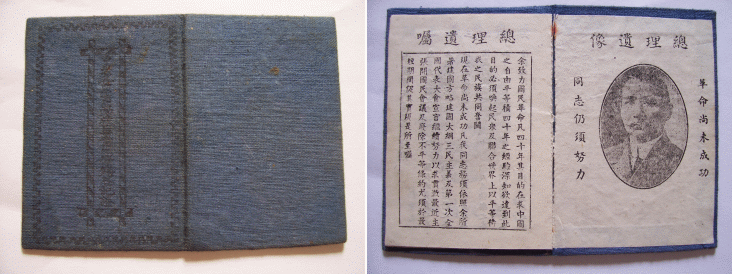 總理遺像
革命尚未成功
同志仍須努力
總理遺囑
余致力國民革命凡四十年其目的在求中國
之自由平等積四十年之經驗深知欲達到此
目的必須喚起民眾及聯合世界上以平等待
我之民族共同奮鬪
現在革命尚未成功凡我同志務須依照余所
著建國方略建國大綱三民主義及第一次全
國代表大會宣言繼續努力以求貫澈最近主
張開國民會議及廢除不平等條約尤須於最
短期間促其實現是所至囑